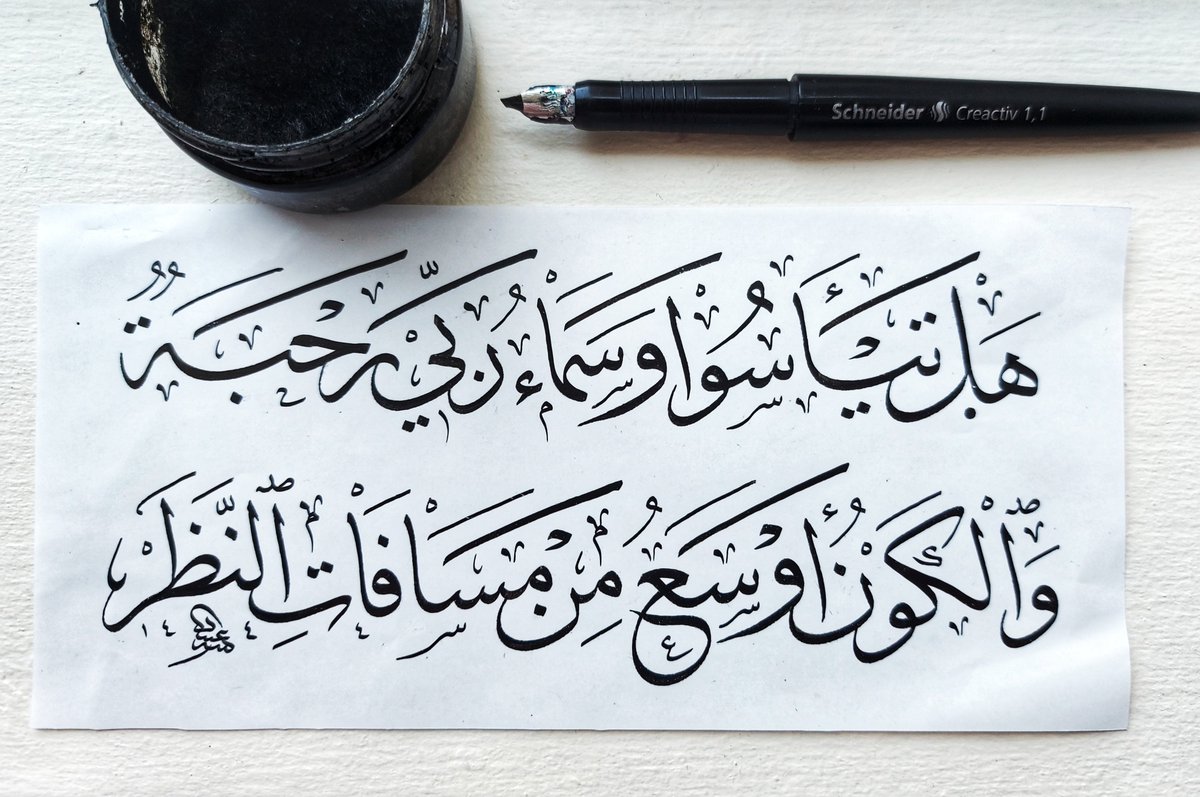 Schneider Creactiv 1,1
هَلْ تَيْأَسُوْا وَسَمَاءُ رَبِّي رَحْبَةٌ
وَٱلْكَوْنُ أَوْسَعُ مِنْ مَسَافَاتِ ٱلنَّظَرْ